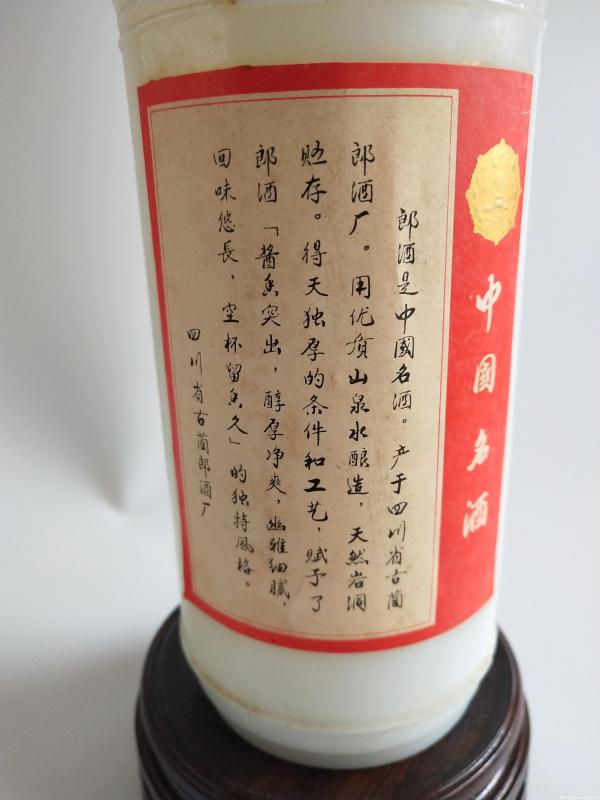 中國名酒
郎酒是中國名酒。产于四川省古蔺
郎酒厂。用优质山泉水酿造，天然岩洞
贮存。得天独厚的条件和工艺，赋予了
郎酒「醬香突出，醇厚净爽，幽雅细腻，
回味悠長，空杯留香久」的独特風格。
四川省古蔺郎酒厂